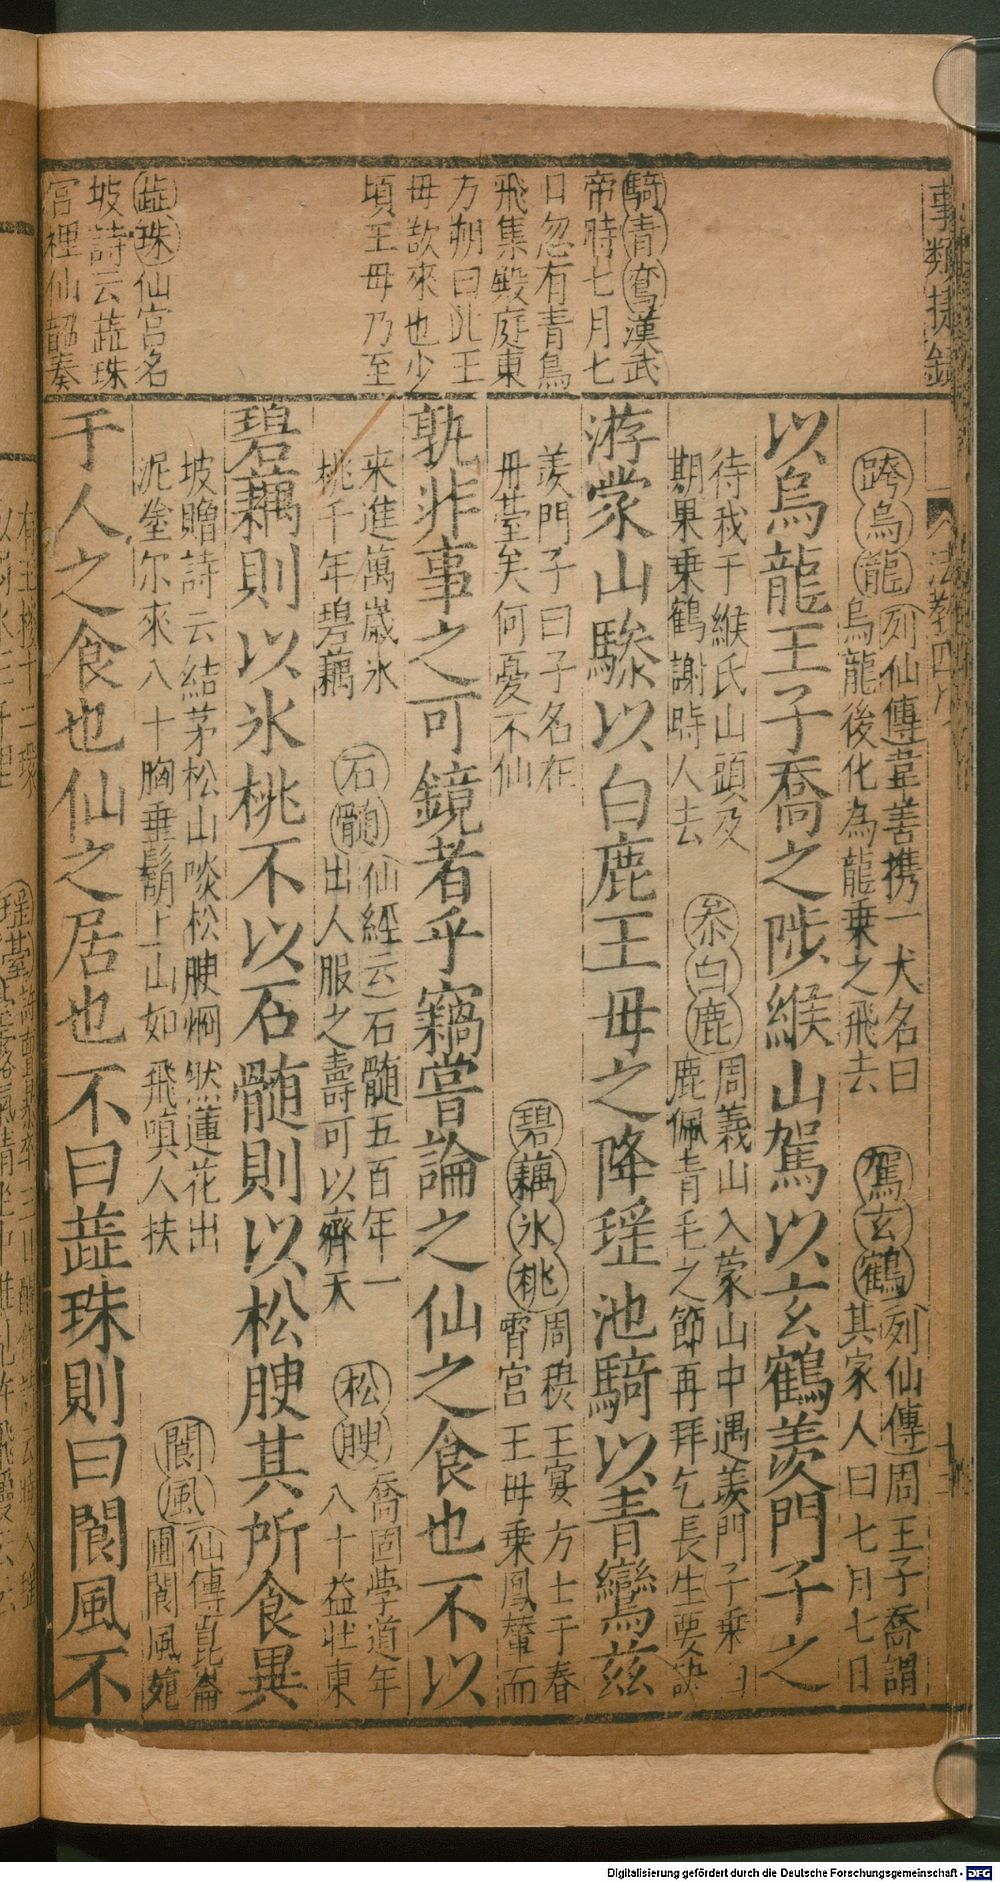 騎青鸞漢武
帝時七月七
日忽有青鳥
飛集殿庭東
方朔曰此王
母欲來也少
頃王母乃至
蕋珠仙宮名
坡詩云蕋珠
宮裡仙韶奏
跨烏龍列仙傳韋善携一犬名曰
烏龍後化為龍乗之飛去
駕玄鶴列仙傳周王子喬謂
其家人曰七月七日
以烏龍王子喬之陟緱山駕以玄鶴羨門子之
待我于緱氏山頭及
期果乗鶴謝時人去
叅白鹿周義山入蒙山中遇羨門子乗白
鹿佩青毛之節再拜乞長生要訣
游蒙山驂以白鹿王母之降瑶池騎以青鸞兹
羨門子曰子名在
丹䑓矣何憂不仙
碧藕氷桃周穆王宴方士于春
霄宮王母乗鳳輦而
孰非事之可鏡者乎竊嘗論之仙之食也不以
来進萬嵗氷
桃千年碧藕
石髓仙經云石髓五百年一
出人服之壽可以齊天
松腴喬固學道年
八十益壯東
碧藕則以氷桃不以石髓則以松腴其所食異
坡贈詩云結茅松山啖松腴烱然蓮花出
泥塗尔來八十胸垂鬍上山如飛嗔人扶
閬風仙傳崑崙
圃閬風苑
于人之食也仙之居也不曰蕋珠則曰閬風不
Digitalisierung gefördert durch die Deutsche Forschungsgemeinschaft - DFG